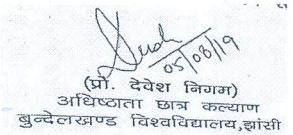 05/08/19
(प्रो. देवेश निगम)
अधिष्ठाता छात्र कल्याण
बुन्देलखण्ड विश्वविद्यालय,झांसी